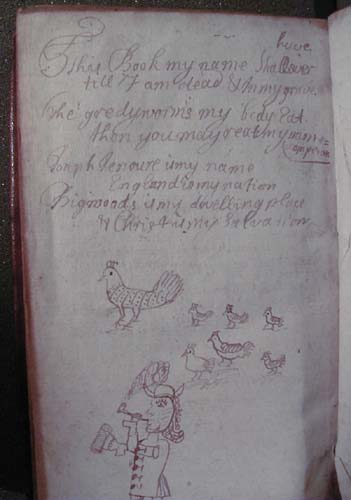 have
This Book my name Shall ever
till I am dead & In my grave
The gredy worms my body Eat
then you may reat my name
Joseph Lenoure is my name
England is my nation
Bigwoods is my dwelling place
& Christ is my Salvation